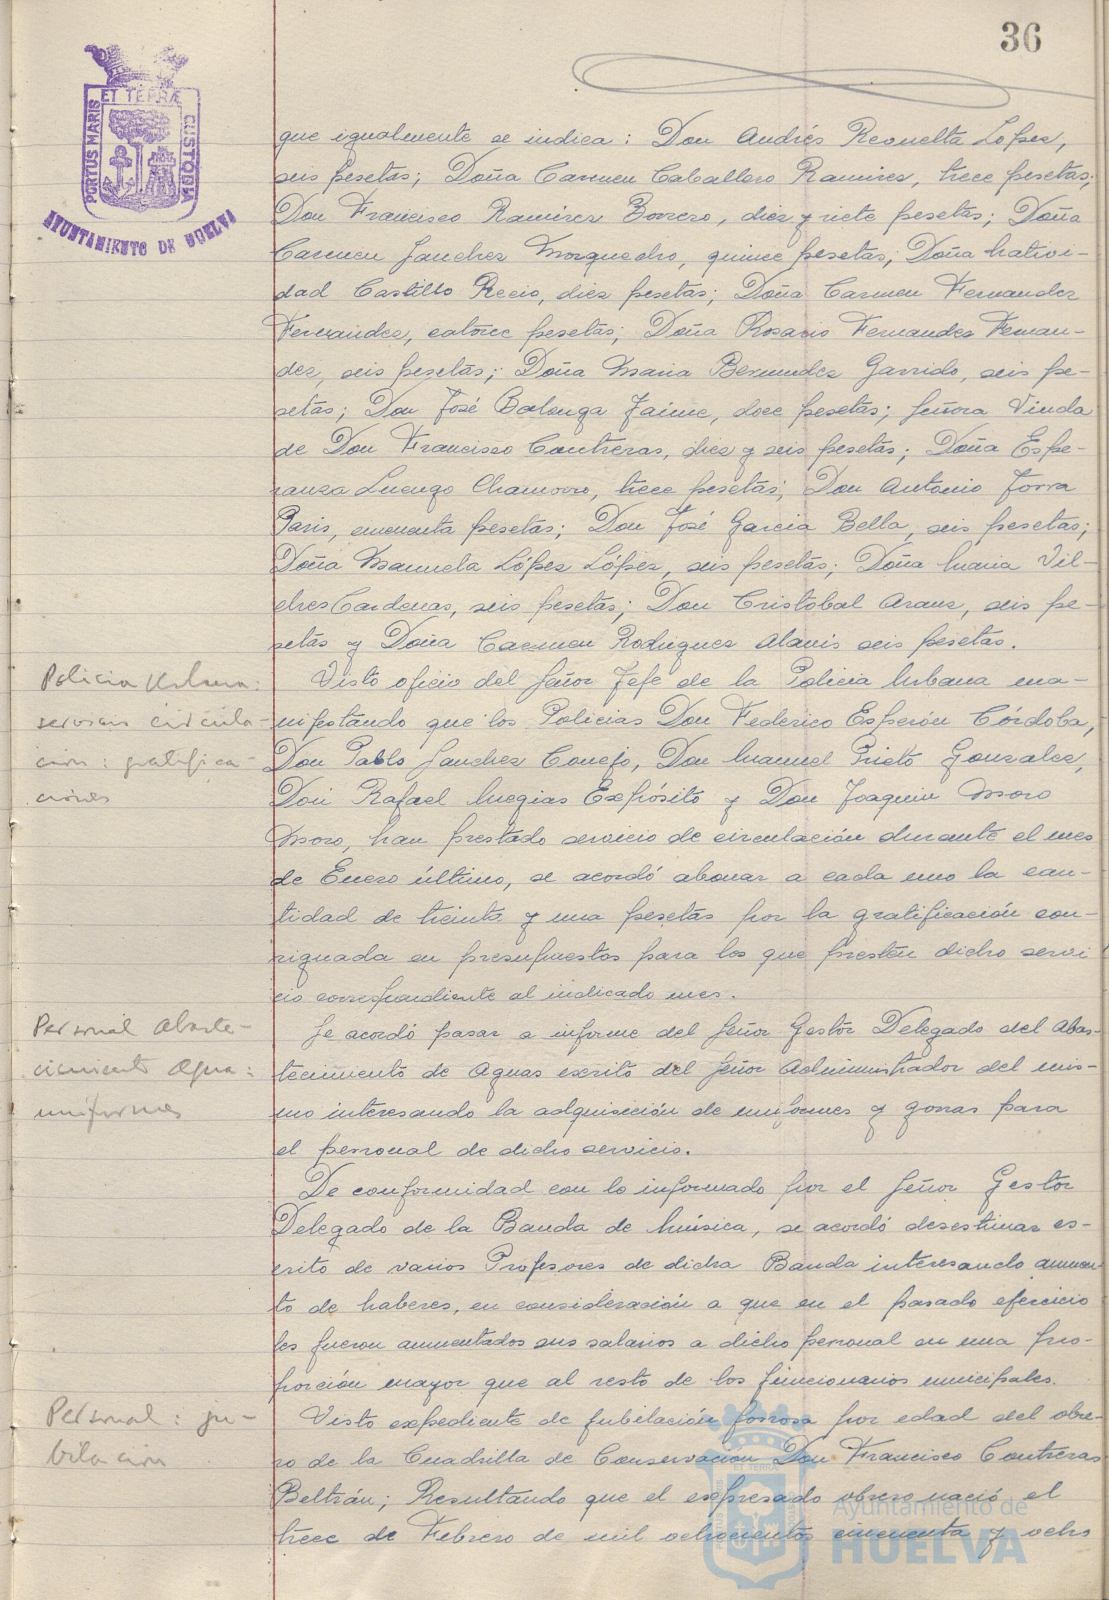 36
PORTUS MARIS
ET TERRÆ
CUSTODIA
AYUNTAMIENTO DE HUELVA
que igualmente se indica: Don Andrés Revuelta López,
seis pesetas; Doña Carmen Caballero Ramirez, trece pesetas;
Don Francisco Ramirez Borrero, diez y siete pesetas; Doña
Carmen Sanchez Morquecho, quince pesetas; Doña Nativi-
dad Castillo Recio, diez pesetas; Doña Carmen Fernandez
Fernandez, catorce pesetas; Doña Rosario Fernandez Fernan-
dez, seis pesetas; Doña Maria Bermudez Garrido, seis pe-
setas; Don José Balonga Jaime, doce pesetas; Señora Viuda
de Don Francisco Contreras, diez y seis pesetas; Doña Espe-
ranza Luengo Chamorro, trece pesetas; Don Antonio Jorva
Paris, cincuenta pesetas; Don José Garcia Bella, seis pesetas;
Doña Manuela López López, seis pesetas; Doña Maria Vil-
ches Cardenas, seis pesetas; Don Cristobal Arauz, seis pe-
setas y Doña Carmen Rodriguez Alanis seis pesetas.
Policia Urbana:
servicio circula-
ción: gratifica-
ciones
Visto oficio del Señor Jefe de la Policia Urbana ma-
nifestando que los Policias Don Federico Esperón Córdoba,
Don Pablo Sanchez Conejo, Don Manuel Prieto Gonzalez,
Don Rafael Megias Expósito y Don Joaquin Moro
Moro, han prestado servicio de circulación durante el mes
de Enero último, se acordó abonar a cada uno la can-
tidad de treinta y una pesetas por la gratificación con-
signada en presupuestos para los que presten dicho servi
cio correspondiente al indicado mes.
Personal Abaste-
cimiento Agua:
uniformes
Se acordó pasar a informe del Señor Gestor Delegado del Abas-
tecimiento de Aguas escrito del Señor Administrador del mis-
mo interesando la adquisición de uniformes y gorras para
el personal de dicho servicio.
De conformidad con lo informado por el Señor Gestor
Delegado de la Banda de Música, se acordó desestimar es-
crito de varios Profesores de dicha Banda interesando aumen-
to de haberes, en consideración a que en el pasado ejercicio
les fueron aumentados sus salarios a dicho personal en una pro-
porción mayor que al resto de los funcionarios municipales.
Personal: ju-
bilación
Visto expediente de jubilación forzosa por edad del obre-
ro de la Cuadrilla de Conservación Don Francisco Contreras
Beltrán; Resultando que el expresado obrero nació el
trece de Febrero de mil ochocientos cincuenta y ocho
Ayuntamiento de
HUELVA